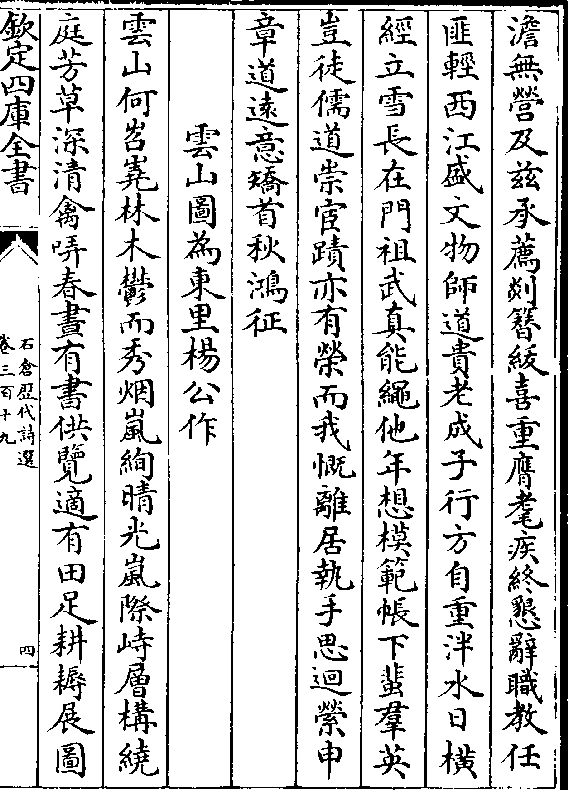 澹無營及兹承薦剡簪紱喜重膺耄疾終懇辭職教任
匪輕西江盛文物師道貴老成子行方自重泮水日横
經立雪長在門祖武真能繩他年想模範帳下蜚羣英
豈徒儒道崇宦蹟亦有榮而我慨離居執手思迴縈申
章道遠意矯首秋鴻征
雲山圖為東里楊公作
雲山何岧嶤林木鬱而秀烟嵐絢晴光嵐際峙層構繞
庭芳草深清禽哢春晝有書供覽適有田足耕耨展圖
欽定四庫全書
石倉歴代詩選
卷三百十九
四